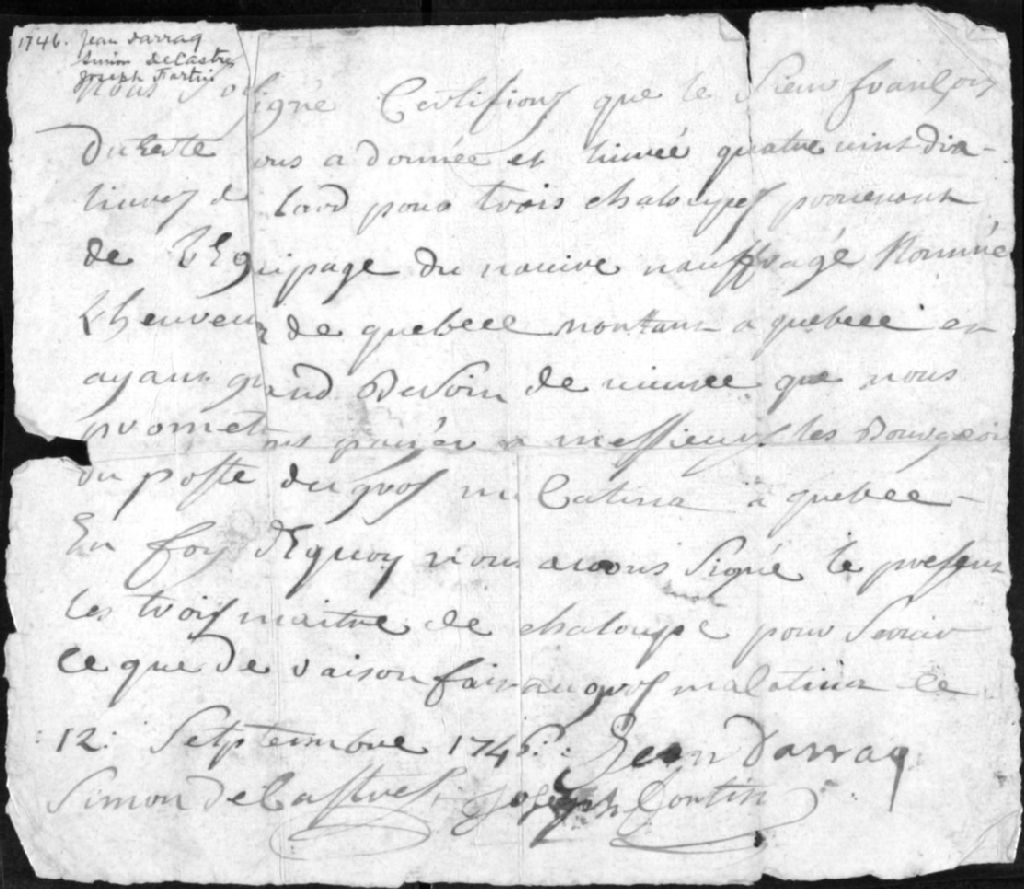 1746. Jean Darraq
Simon de Castres
Joseph
nous Sousigné Certifions que le Sieur françois
Duheste nous a donnée et livrée quatre vint dix
livres de Lard pour trois chaloupes provenant
de L'Equipage du navire nauffragé Nommé
L'heureux de quebecc montant a quebecc en
ayant grand Besoin de vivre que nous
prometons payér a messieurs les Bourgeois
du poste du gros mecatina a quebec
En foy dEquoy nous avons Signé le present
les trois maitre de chaloupe pour Servir
ce que de raison fait au gros macatina le
12: Septembre 1746: Jean Darraq
Simon de Castres Joseph